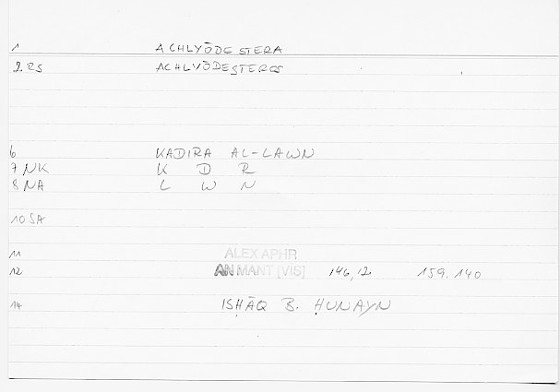 1 ACHLYŌDESTERA
2.RS ACHLYŌDESTEROS
6 KADIRA AL-LAWN
7 NK K D R
8 NA L W N
10 SA
11 ALEX APHR
12 AN MANT [VIS] 146,12 159.140
14 ISḤĀQ B. ḤUNAYN